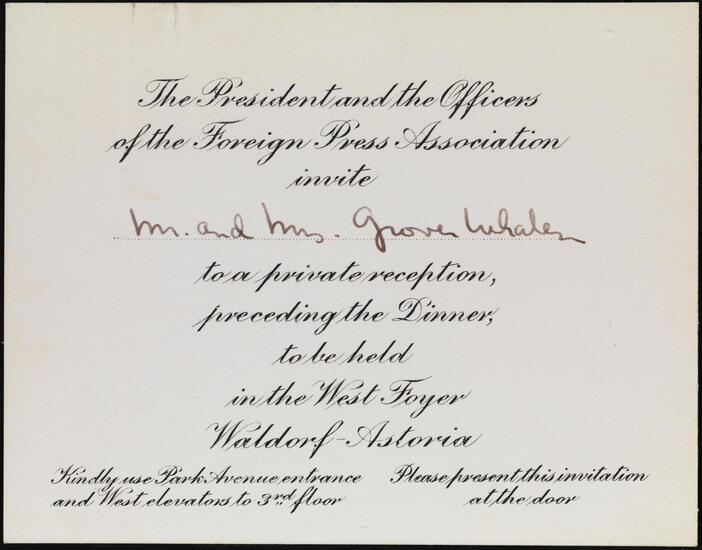 The President and the Officers
of the Foreign Press Association
invite
Mr. and Mrs. Grover Whalen
to a private reception,
preceding the Dinner,
to be held
in the West Foyer
Waldorf-Astoria
Kindly use Park Avenue entrance
and West elevators to 3rd floor
Please present this invitation
at the door